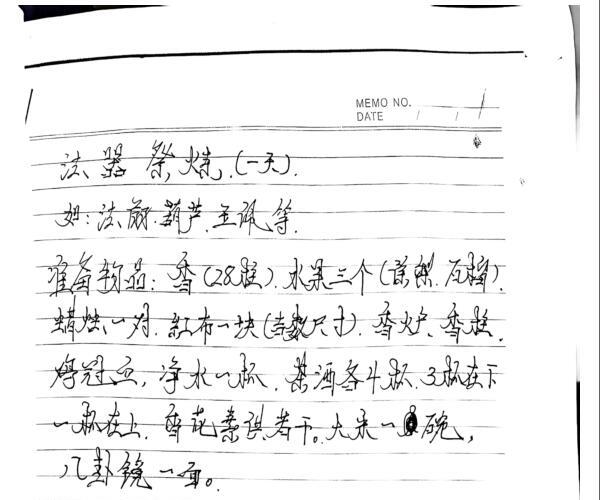 MEMO NO.
DATE / /
法器祭炼,(一天).
如:法蔬.葫芦.玉佩等.
准备物品:香(28柱).水果三个(除梨.石榴).
蜡烛一对.红布一块(寺数尺寸).香火炉.香柱.
冠血,净水一杯.茶酒各4杯.3杯在下
一杯在上.香花素供若干。大米一碗,
八卦镜一面。